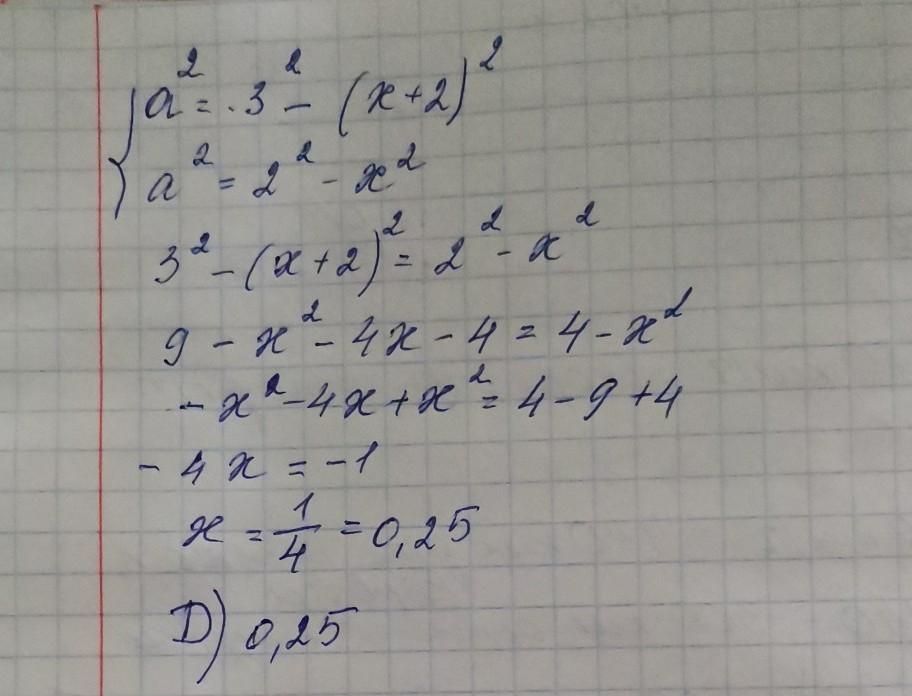 { a² = 3² - (x+2)²
a² = 2² - x²
3² - (x+2)² = 2² - x²
9 - x² - 4x - 4 = 4 - x²
- x² - 4x + x² = 4 - 9 + 4
- 4x = -1
x = 1/4 = 0,25
D) 0,25